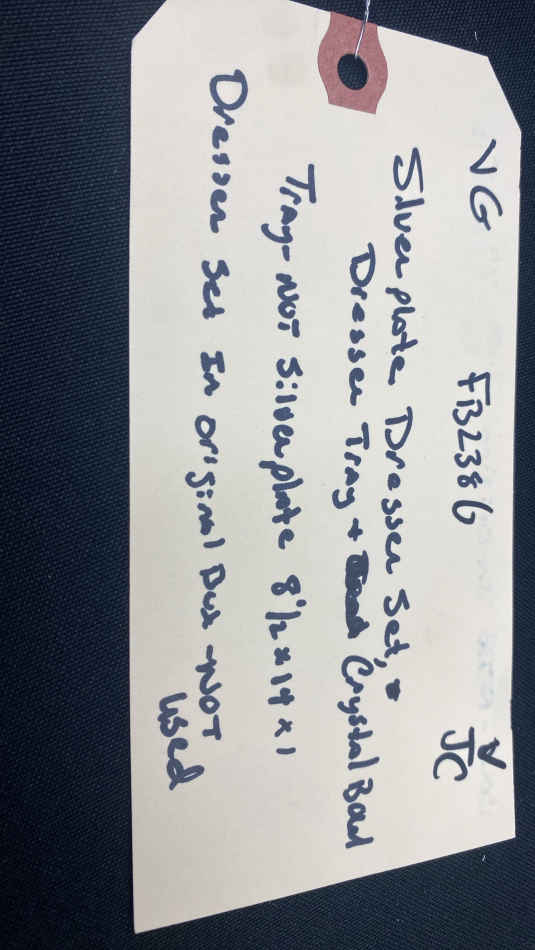 VG FB2386 V
JC
Silverplate Dresser Set, +
Dresser Tray + Crystal Bowl
Tray - NOT Silverplate 8 1/2 x 14 x 1
Dresser Set In original Box - NOT
Used